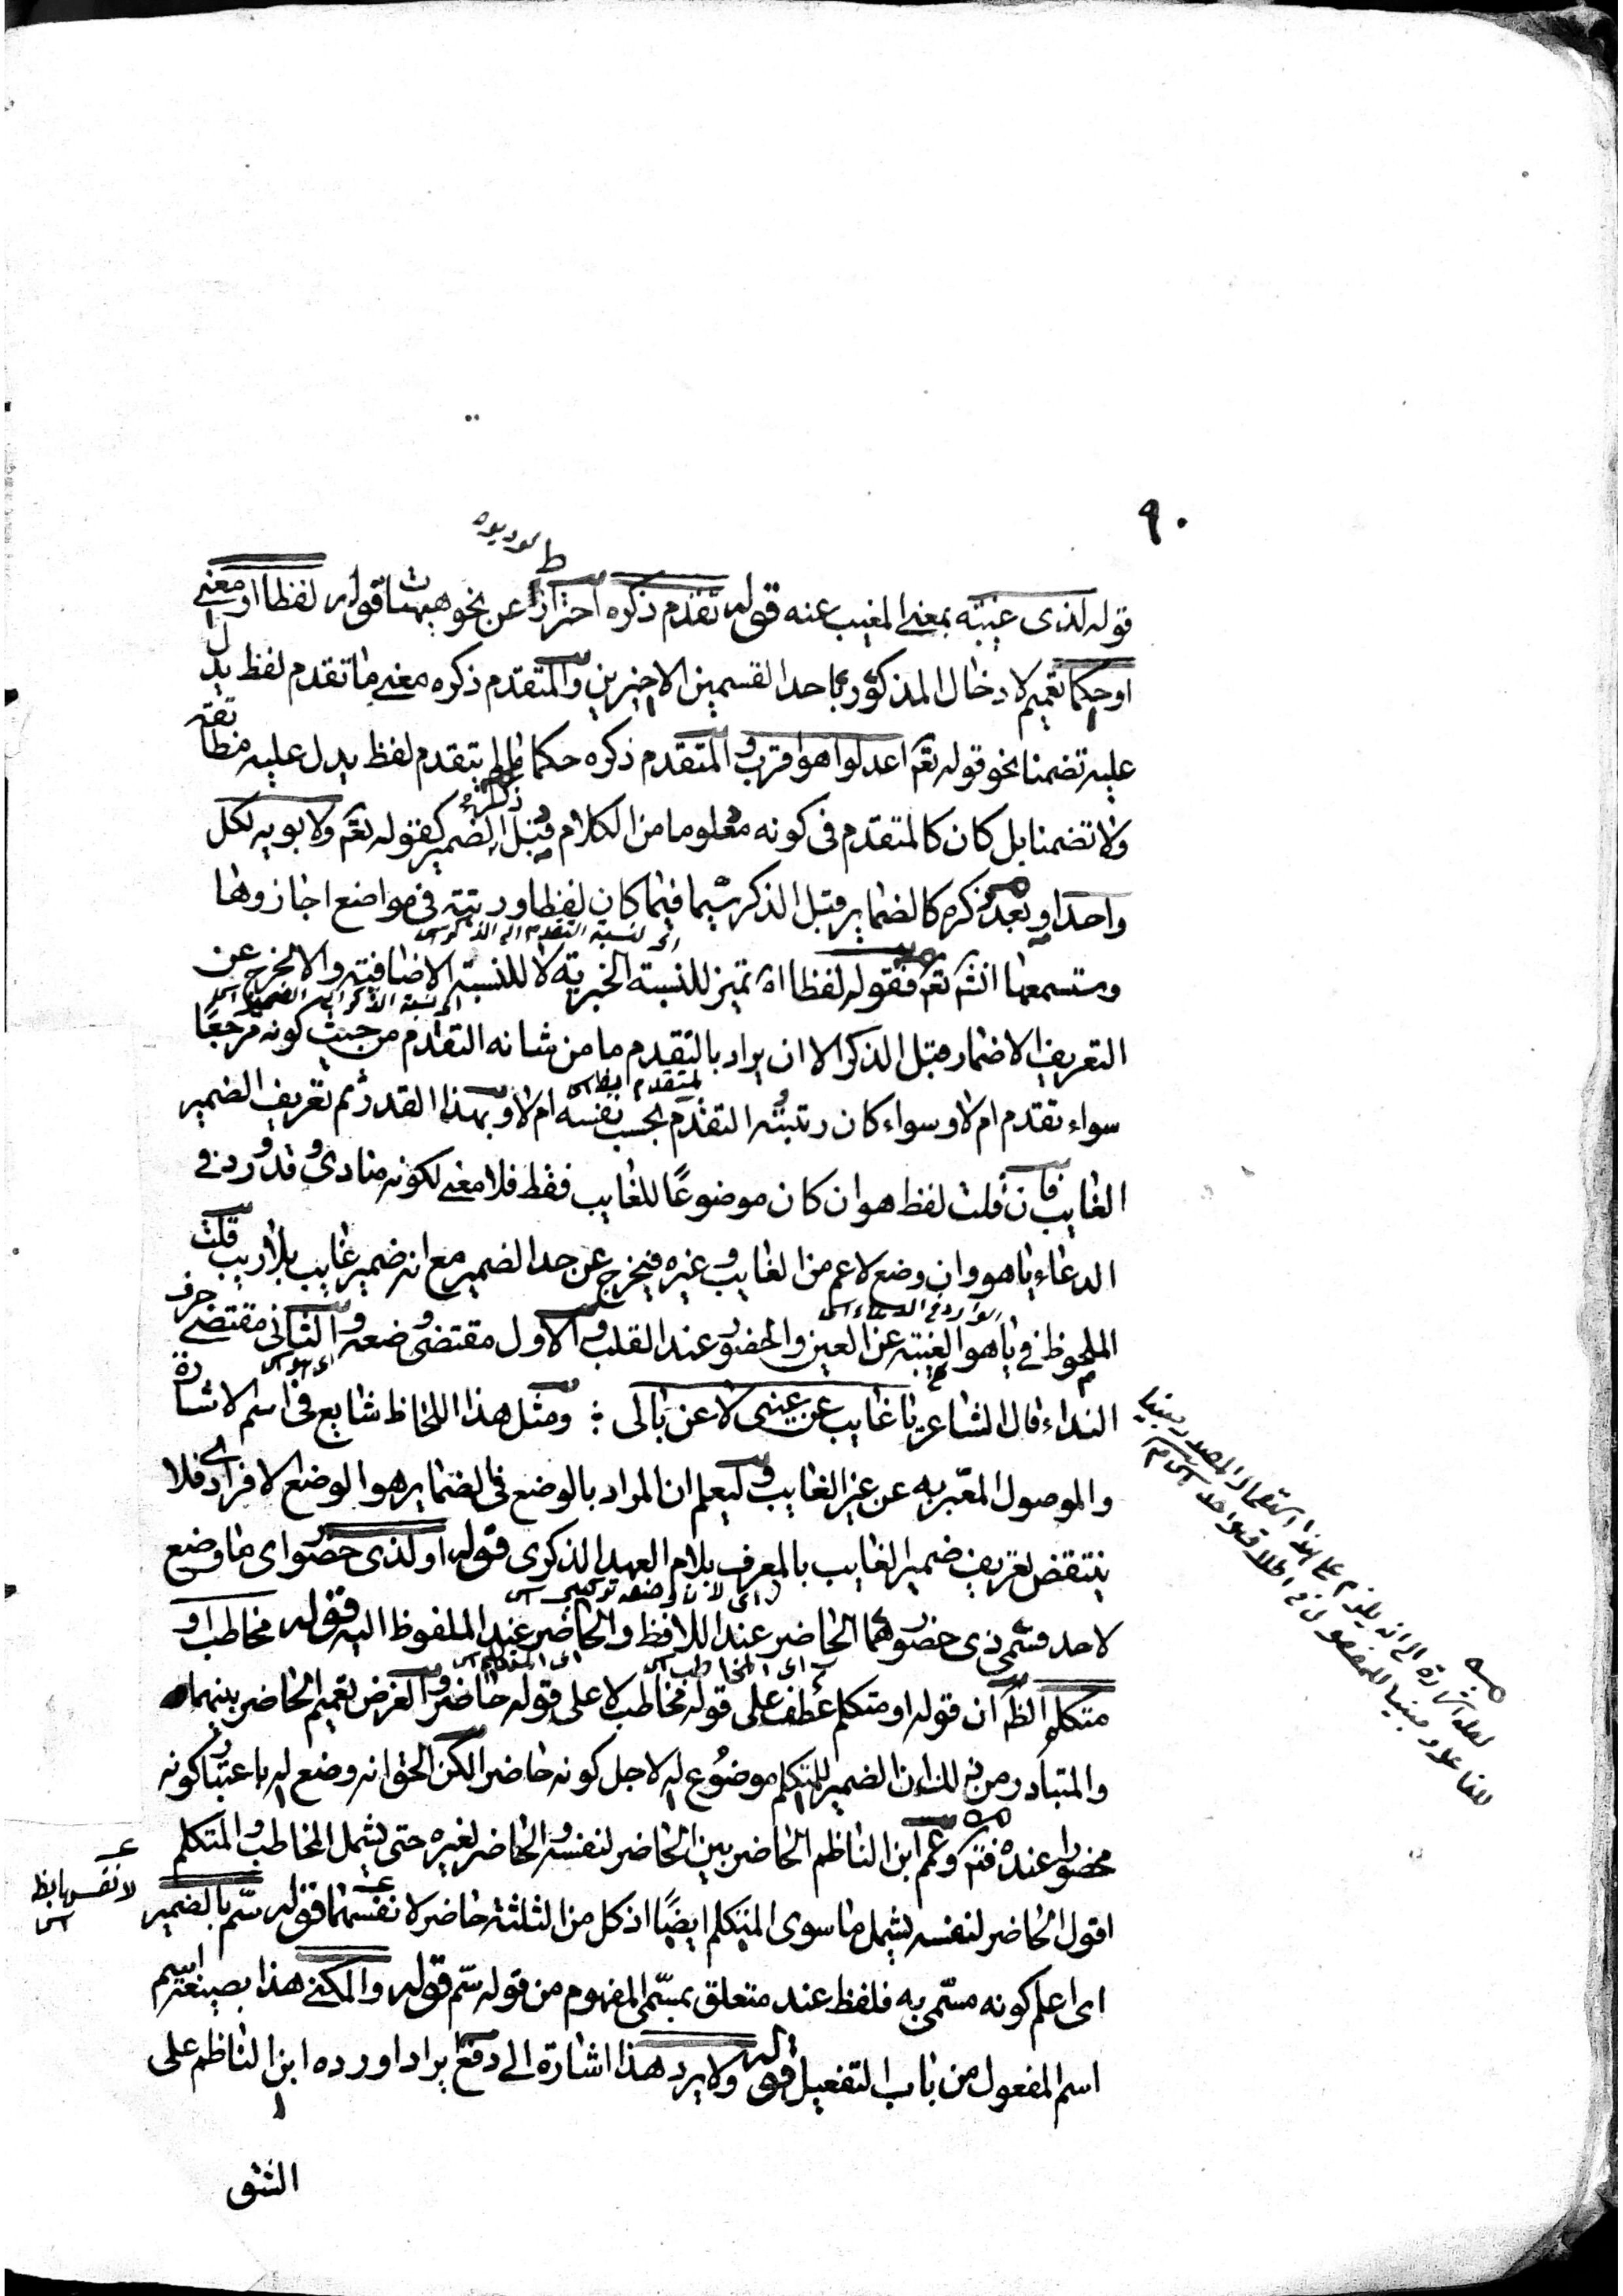 ٩٠
قوله لذى غيبته بمعنى المغيب عنه قوله تقدم ذكره احترازا عن نحو هيهنا قوله لفظا او معنى
او حكما تعميم لادخال المذكور باحد القسمين الاخيرين والمتقدم ذكره معنى ما تقدم لفظ يدل
عليه تضمنا نحو قوله تعم اعدلوا هو اقرب والمتقدم ذكره حكما ما لم يتقدم لفظ يدل عليه مطابقة
ولا تضمنا بل كان كالمتقدم فى كونه معلوما من الكلام قبل ذكر الضمير كقوله تعم ولابويه لكل
واحد او بعد ذكره كالضماير قبل الذكر سيما فيما كان لفظا ورتبة فى مواضع اجازوها
وستسمعها انش تعم فقوله لفظا اه تميز للنسبة الخبرية لا للنسبة الاضافية والا لخرج عن
اى لنسبة التقدم الى الذكر س
اى نسبة الذكر الى الضمير س
التعريف الاضمار قبل الذكر الا ان يراد بالتقدم ما من شانه التقدم من حيث كونه مرجعا
سواء تقدم ام لا وسواء كان رتبته التقدم بحسب نفسه ام لا وبهذا القدر ثم تعريف الضمير
الغايب فان قلت لفظ هو ان كان موضوعا للغايب فقط فلا معنى لكونه منادى وقد ورد فى
الدعاء ياهو وان وضع لاعم من الغايب وغيره فيخرج عن حد الضمير مع انه ضمير غايب بلا ريب قلت
الملحوظ فى ياهو الغيبة عن العين والحضور عند القلب والاول مقتضى وضعه والثانى مقتضى حرف
الوارد فى الدعاء س
النداء قال الشاعر يا غايب عن عينى لا عن بالى ؛ ومثل هذا اللحاظ شايع فى اسم الاشارة
والموصول المعبر به عن غير الغايب وليعلم ان المراد بالوضع فى الضماير هو الوضع الافرادى فلا
ينتقض تعريف ضمير الغايب بالمعرف بلام العهد الذكرى قوله او لذى حضور اى ما وضع
اى لان وضعه تركيبى س
لاحد قسمى ذى حضور هما الحاضر عند اللافظ والحاضر عند الملفوظ اليه قوله مخاطب او
اى المخاطب س
اى المتكلم س
متكلم الظ ان قوله او متكلم عطف على قوله مخاطب لا على قوله حاضر والغرض تعميم الحاضر بينهما
والمتبادر من ذلك ان الضمير للمتكلم موضوع له لاجل كونه حاضرا لكن الحق انه وضع له باعتبار كونه
محضورا عنده فتم وعمم ابن الناظم الحاضر بين الحاضر لنفسه والحاضر لغيره حتى يشمل المخاطب والمتكلم
اقول الحاضر لنفسه يشمل ما سوى المتكلم ايضا اذ كل من الثلثة حاضر لا نفسهما قوله سم بالضمير
اى اعلم كونه مسمى به فلفظ عند متعلق بمسمى المفهوم من قوله سم قوله والمكنى هذا بصيغة اسم
اسم المفعول من باب التفعيل قوله ولا يرد هذا اشارة الى دفع ايراد اورده ابن الناظم على
الشق
لعله اشارة الى انه يلزم على هذا استعمال المصدر مبنيا
للفاعل ومبنيا للمفعول فى اطلاق واحد س م